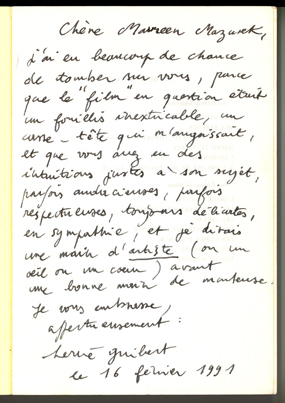 Chère Maureen Mazurek,
j'ai eu beaucoup de chance
de tomber sur vous, parce
que le "film" en question était
un fouillis inextricable, un
casse-tête qui m'angoissait,
et que vous avez eu des
intuitions justes à son sujet,
parfois audacieuses, parfois
respectueuses, toujours délicates,
en sympathie, et je dirais
une main d'artiste (ou un
œil ou un cœur) avant
une bonne main de monteuse.
Je vous embrasse,
affectueusement :
Hervé Guibert
le 16 février 1991